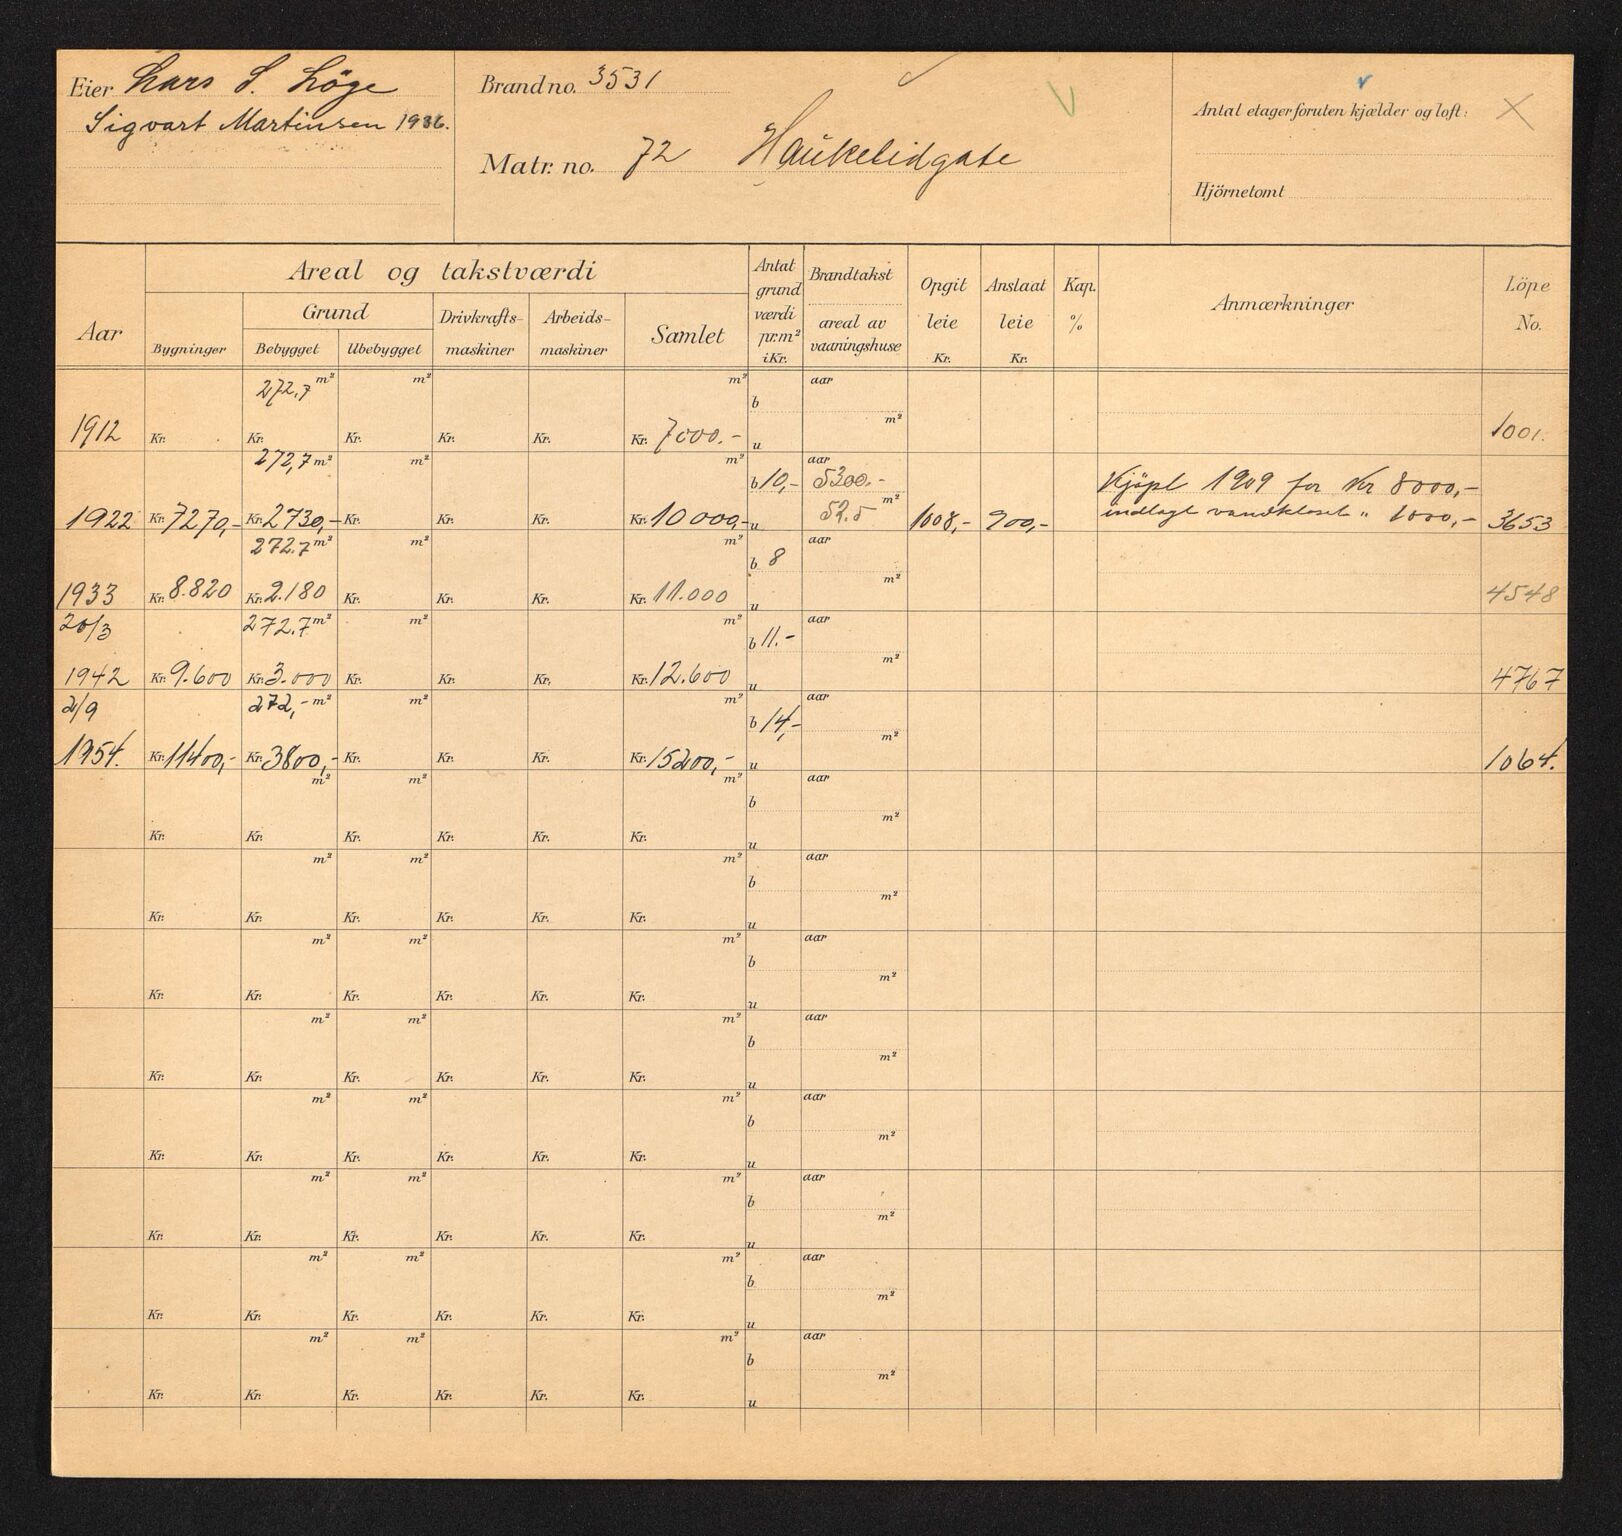 Eier Lars S. Löge
Sigvart Martinsen 1936.
Brandno. 3531
Matr. no. 72 Haukelidgate
Antal etager foruten kjælder og loft:
Hjörnetomt
Aar
Areal og takstværdi
Grund
Bygninger
Bebygget
Ubebygget
Drivkrafts-
maskiner
Arbeids-
maskiner
Samlet
Antat
grund
værdi
pr.m²
i Kr.
Brandtakst
areal av
vaaningshuse
Opgit
leie
Kr.
Anslaat
leie
Kr.
Kap.
%
Anmærkninger
Löpe
No.
272.7 m² m² m² aar
b
m²
1912 Kr. Kr. Kr. Kr. Kr. Kr. 7000.- u 1001.
272,7 m² m² m² aar
b 10,- 5300.- Kjöpt 1909 for Kr 8000,-
m²
1922 Kr. 7270,- Kr. 2730,- Kr. Kr. Kr. Kr. 10000,- u 52.5 1008,- 900,- indlagt vandkloset " 1000,- 3653
272.7 m² m² m² aar
b 8
m²
1933 Kr. 8.820 Kr. 2.180 Kr. Kr. Kr. Kr. 11.000 u 4548
20/3 272.7 m² m² m² aar
b 11.-
m²
1942 Kr. 9.600 Kr. 3.000 Kr. Kr. Kr. Kr. 12.600 u 4767
2/9 272,- m² m² m² aar
b 14,-
m²
1954. Kr. 11400,- Kr. 3800,- Kr. Kr. Kr. Kr. 15200,- u 1064.
m² m² m² aar
b
m²
Kr. Kr. Kr. Kr. Kr. Kr. u
m² m² m² aar
b
m²
Kr. Kr. Kr. Kr. Kr. Kr. u
m² m² m² aar
b
m²
Kr. Kr. Kr. Kr. Kr. Kr. u
m² m² m² aar
b
m²
Kr. Kr. Kr. Kr. Kr. Kr. u
m² m² m² aar
b
m²
Kr. Kr. Kr. Kr. Kr. Kr. u
m² m² m² aar
b
m²
Kr. Kr. Kr. Kr. Kr. Kr. u
m² m² m² aar
b
m²
Kr. Kr. Kr. Kr. Kr. Kr. u
m² m² m² aar
b
m²
Kr. Kr. Kr. Kr. Kr. Kr. u